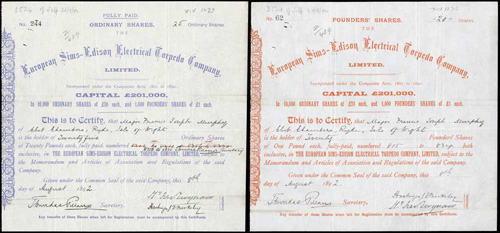 FULLY PAID.
ORDINARY SHARES.
No. 244
25 Ordinary Shares
THE
European Sims-Edison Electrical Torpedo Company,
LIMITED.
Incorporated under the Companies Acts, 1862 to 1890.
CAPITAL £201,000,
In 10,000 ORDINARY SHARES of £20 each, and 1,000 FOUNDERS' SHARES of £1 each.
This is to Certify that Major Francis Joseph Murphy
of Club Chambers Ryde, Isle of Wight
is the holder of Twenty five Ordinary Shares
of Twenty Pounds each, fully-paid, numbered
inclusive, in THE EUROPEAN SIMS-EDISON ELECTRICAL TORPEDO COMPANY, LIMITED, subject to the
Memorandum and Articles of Association and Regulations of the said
Company.
Given under the Common Seal of the said Company, this 8th
day of August 1892
Secretary.
Any transfer of these Shares when left for Registration must be accompanied by this Certificate.
FOUNDERS' SHARES.
No. 62
20
THE
European Sims-Edison Electrical Torpedo Company,
LIMITED.
Incorporated under the Companies Acts, 1862 to 1890.
CAPITAL £201,000,
In 10,000 ORDINARY SHARES of £20 each, and 1,000 FOUNDERS' SHARES of £1 each.
This is to Certify that Major Francis Joseph Murphy
of Club Chambers Ryde, Isle of Wight
is the holder of Twenty Founders' Shares
of One Pound each, fully-paid, numbered 815 to 834
both inclusive, in THE EUROPEAN SIMS-EDISON ELECTRICAL TORPEDO COMPANY, LIMITED, subject to the
Memorandum and Articles of Association and Regulations of the said
Company.
Given under the Common Seal of the said Company, this 8th
day of August 1892
Secretary.
Any transfer of these Shares when left for Registration must be accompanied by this Certificate.